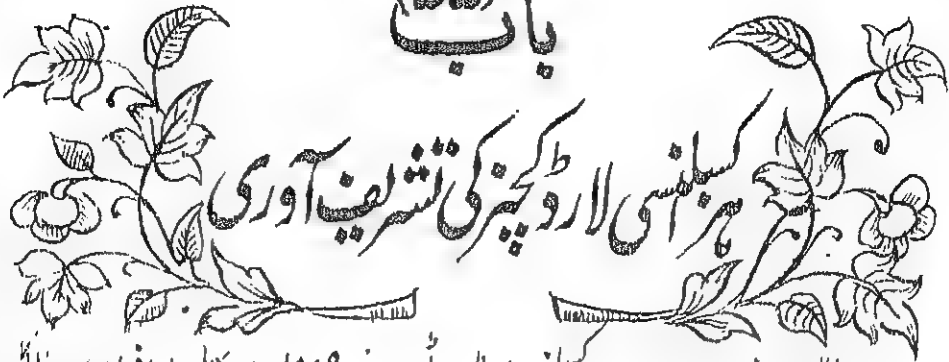 باب
ہز اکسلنسی لارڈ کچنر کی تشریف آوری